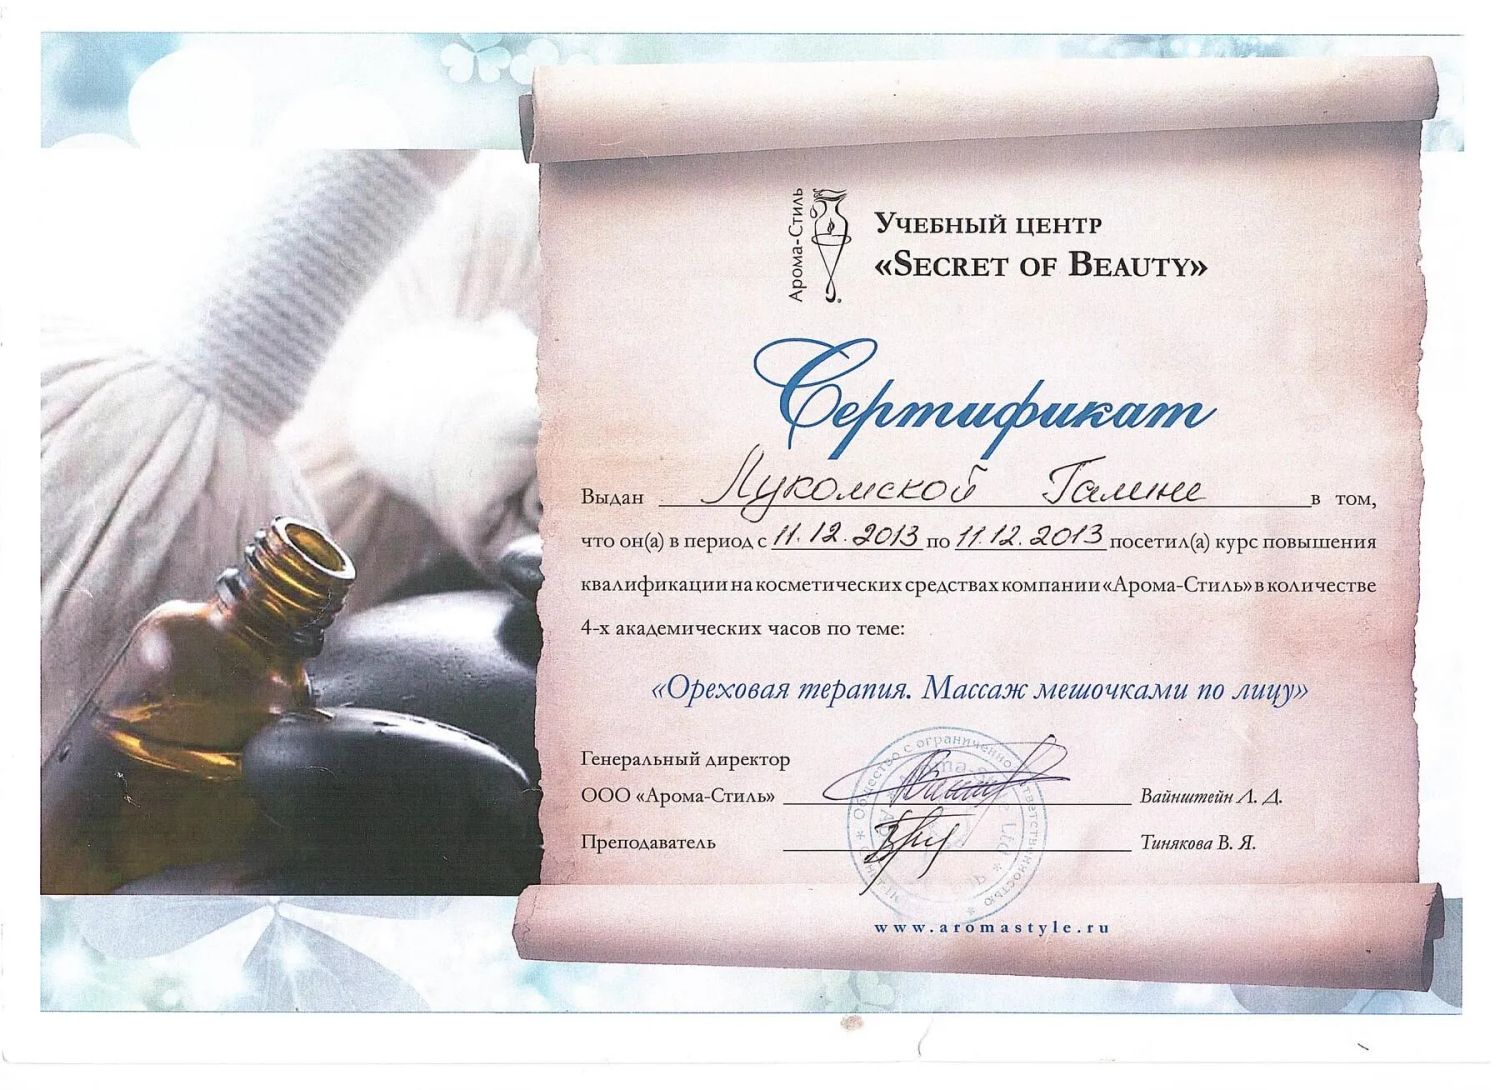 Арома-Стиль
Учебный центр
«Secret of Beauty»
Сертификат
Выдан Лукомской Галине в том,
что он(а) в период с 11.12.2013 по 11.12.2013 посетил(а) курс повышения
квалификации на косметических средствах компании «Арома-Стиль» в количестве
4-х академических часов по теме:
«Ореховая терапия. Массаж мешочками по лицу»
Генеральный директор
ООО «Арома-Стиль» Вайнштейн Л. Д.
Преподаватель Тинякова В. Я.
Общество с ограниченной ответственностью
www.aromastyle.ru